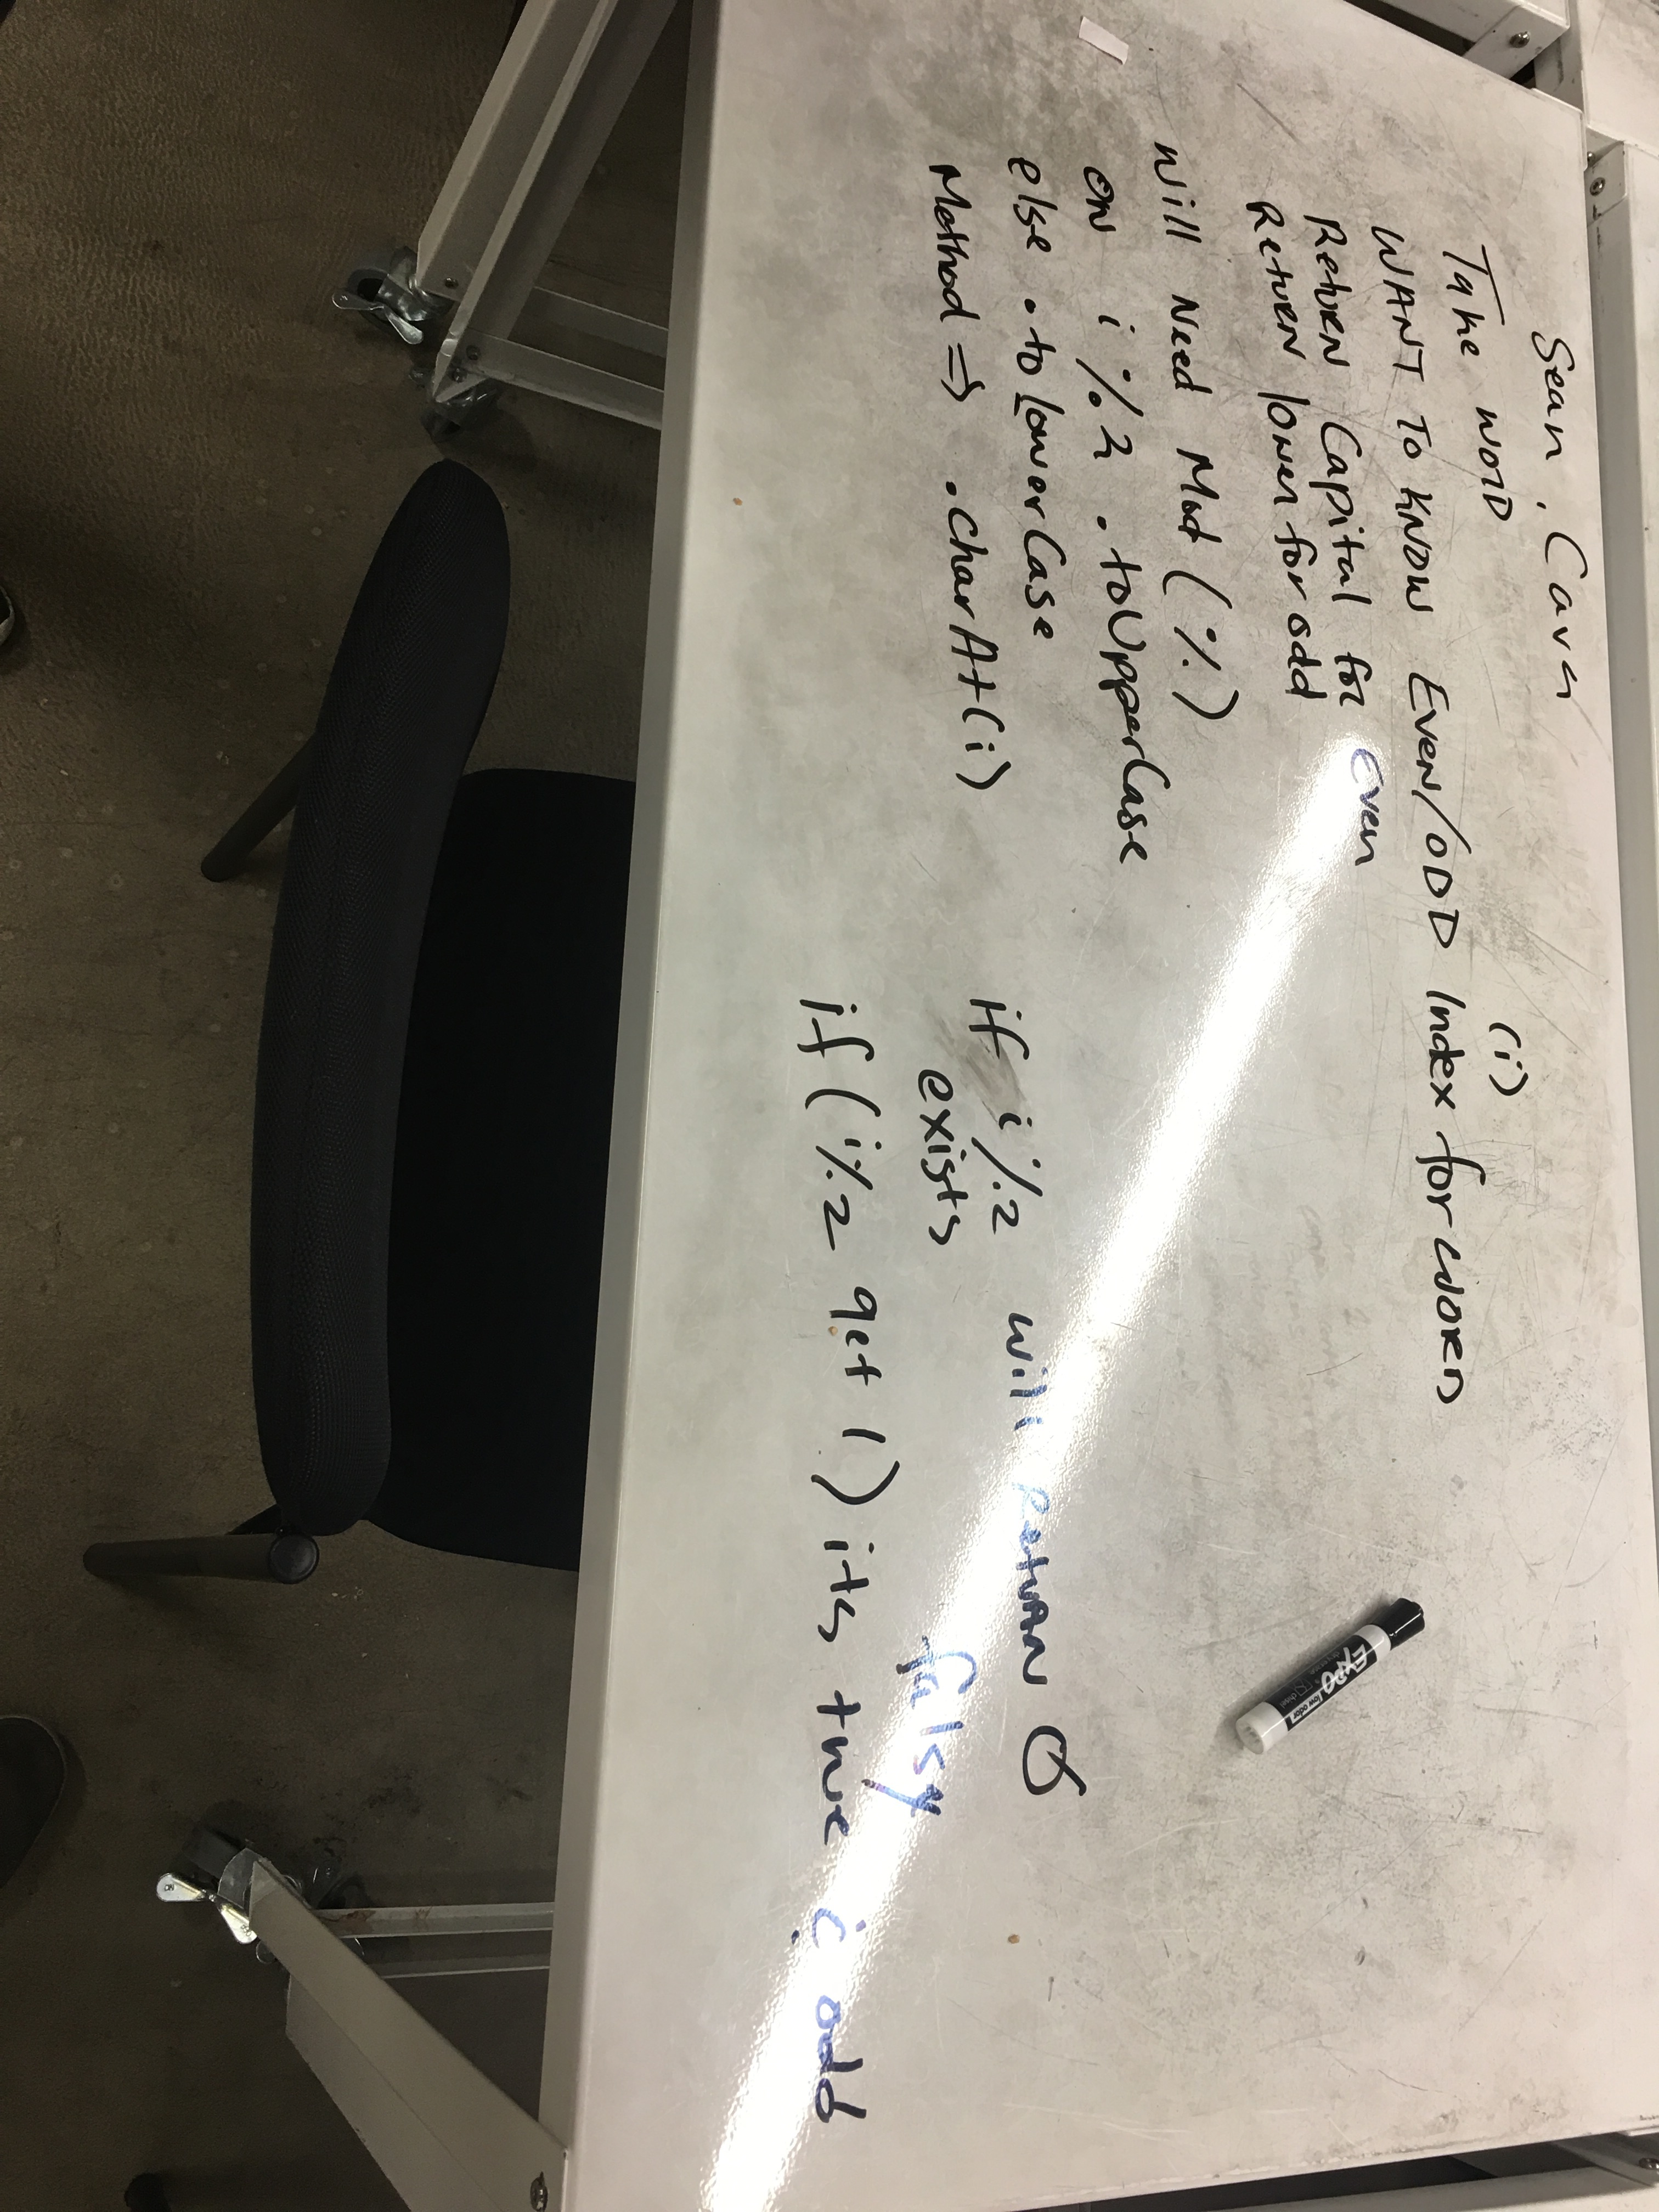 Sean, Cava
Take WORD
(i)
WANT TO KNOW EVEN/ODD Index for WORD
Return Capital for Even
Return lower for odd
Will Need Mod (%)
ON i % 2 .toUpperCase
else .to lowerCase
Method => .charAt(i)
if i % 2 will return 0
exists falsy
if (i%2 get 1) its true i odd
EXPO
low odor